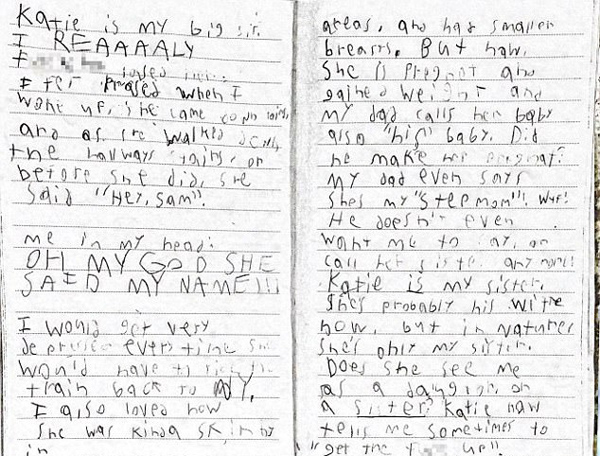 Katie is my big sis.
I REAAAALY
I felt praised when I
woke up, she came
and as she walked down
the hallways
before she did, she
said "Hey, Sam".
me in my head:
OH MY GOD SHE
SAID MY NAME!!!
I would get very
every time she
would have to
train back to NY.
I also loved how
she was kinda skinny
in
areas, and had smaller
breasts. But now,
she is pregnat and
gained weight and
my dad calls her baby
also "his" baby. Did
he make her pregnat?
My dad even says
shes my "step mom"!
He doesn't even
want me to say, or
call her sister any more!
Katie is my sister.
She's probably his wife
now, but in nature
she's only my sister.
Does she see me
as a daughter, or
a sister? Katie now
tells me sometimes to
"get the up".